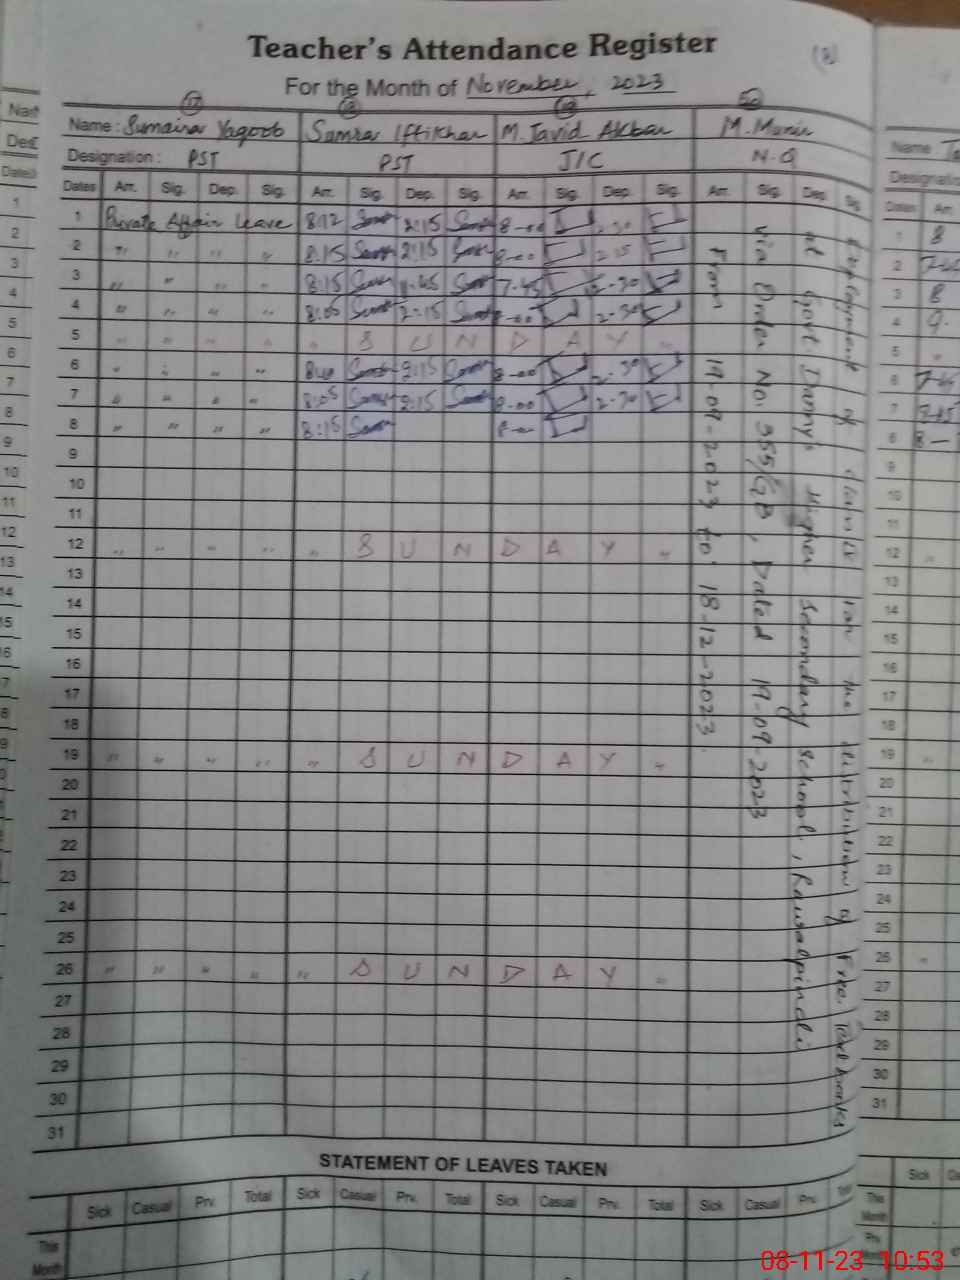 Teacher's Attendance Register
For the Month of November, 2023
17 18 19 50
Name: Sumaira Yaqoob Samra Iftikhar M. Javid Akbar M. Munir
Designation: PST PST J/C N.Q
Dates Arr. Sig. Dep. Sig. Arr. Sig. Dep. Sig. Arr. Sig. Dep. Sig. Arr. Sig. Dep. Sig.
1 Private Affair Leave 8:12 2:15 8-00 2-30
2 " " " " 8:15 2:15 8-00 2-15
3 " " " " 8:15 11.45 7-45 12-30
4 " " " " 8:00 2:15 8-00 2-30
5 " " " " " S U N D A Y "
6 " " " " 2:15 8-00 2-30
7 " " " " 8:05 2:15 8-00 2-30
8 " " " " 8:15 8-00
9
10
11
12 " " " " " S U N D A Y "
13
14
15
16
17
18
19 " " " " " S U N D A Y "
20
21
22
23
24
25
26 " " " " " S U N D A Y "
27
28
29
30
31
of for the distribution of Free Text books
at Govt. Denny's Higher Secondary School, Rawalpindi
via Order No. 355/GB, Dated 19-09-2023
From 19-09-2023 to 18-12-2023.
STATEMENT OF LEAVES TAKEN
Sick Casual Prv. Total Sick Casual Prv. Total Sick Casual Prv. Total Sick Casual Prv. Total
This Month
Name
Designatio
Dates Arr
1 8
2
3 8
4 9.
5 "
6
7
8 8-
9
10
11
12
13
14
15
16
17
18
19
20
21
22
23
24
25
26
27
28
29
30
31
Sick
This Month
Prv. Month
08-11-23 10:53